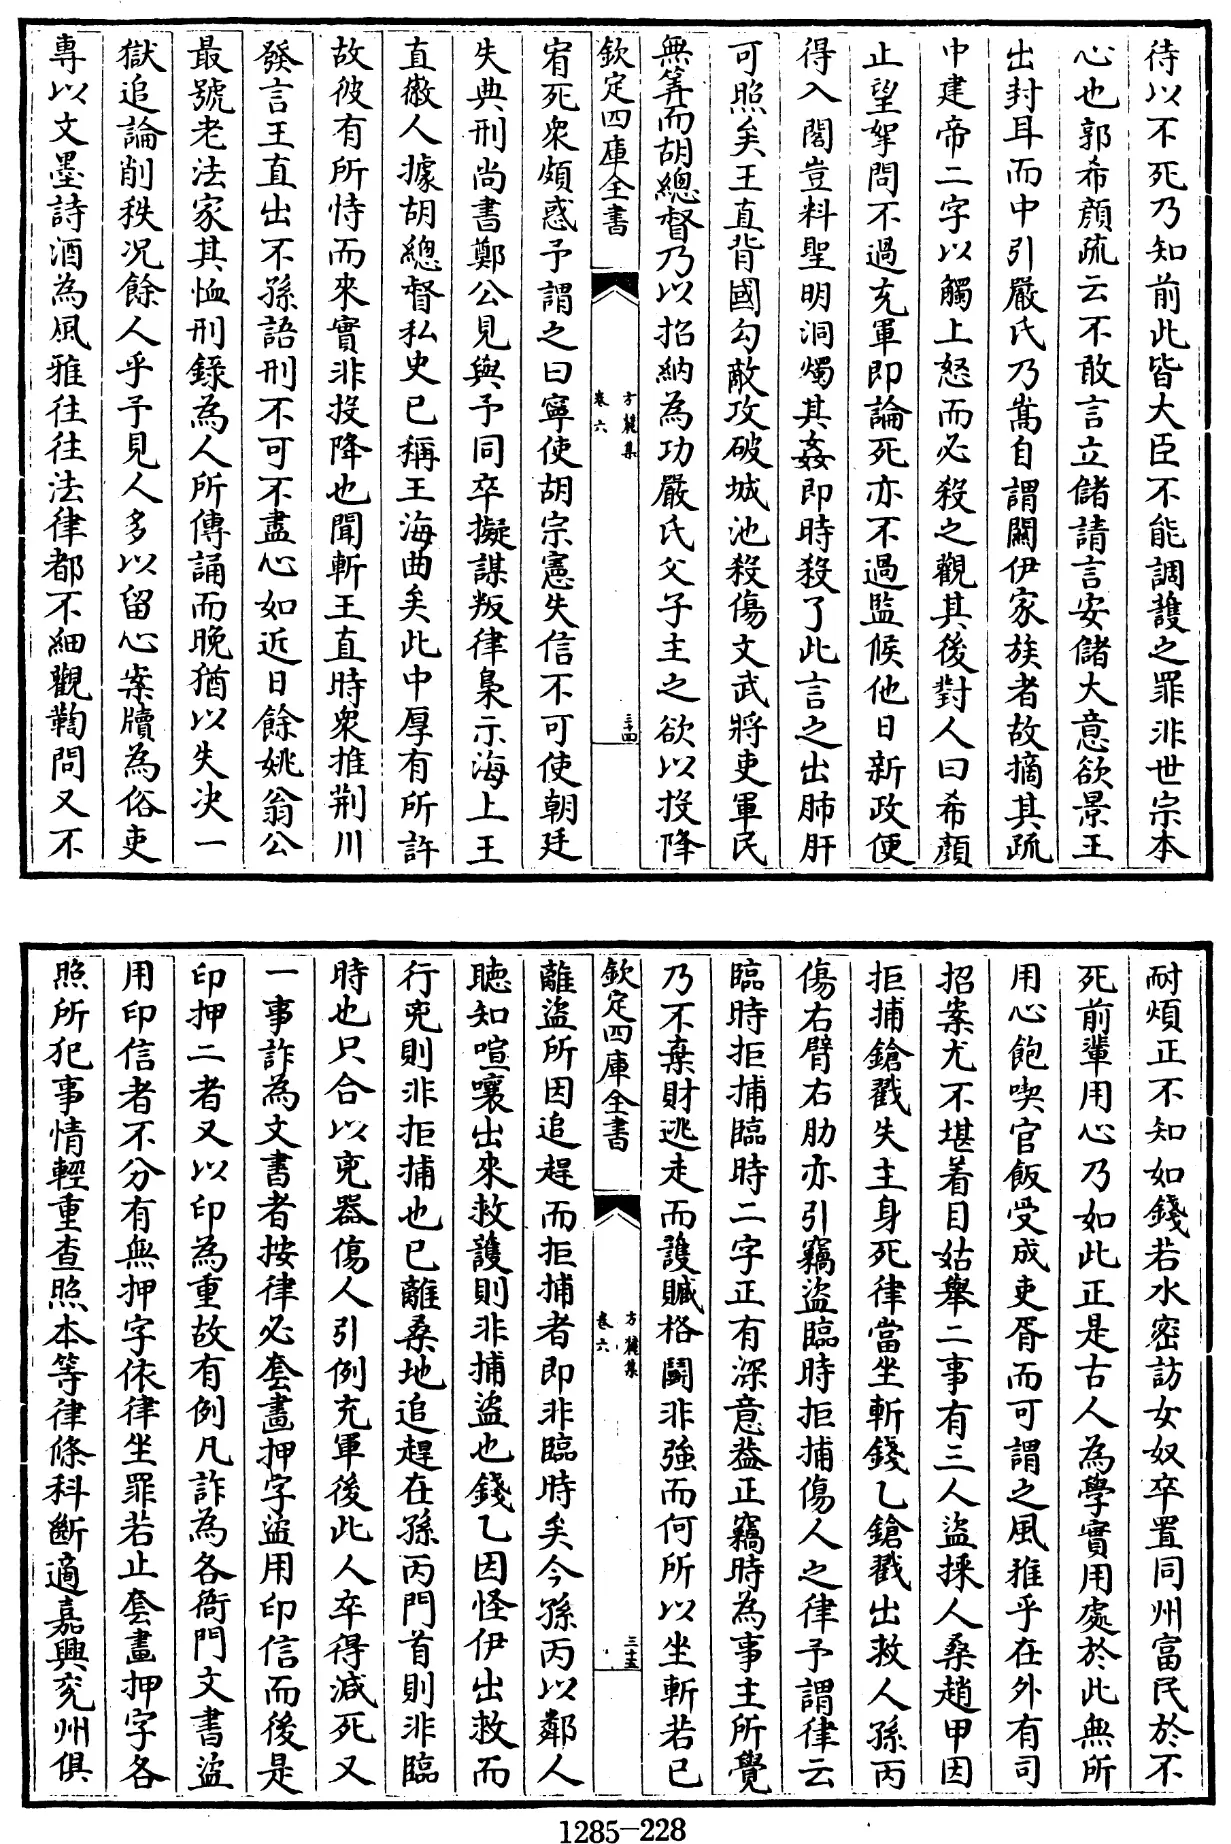 待以不死乃知前此皆大臣不能調護之罪非世宗本
心也郭希顔疏云不敢言立儲請言安儲大意欲景王
出封耳而中引嚴氏乃嵩自謂闗伊家族者故摘其疏
中建帝二字以觸上怒而必殺之觀其後對人曰希顔
止望拏問不過充軍即論死亦不過監候他日新政便
得入閣豈料聖明洞燭其姦即時殺了此言之出肺肝
可照矣王直背國勾敵攻破城池殺傷文武將吏軍民
無筭而胡總督乃以招納為功嚴氏父子主之欲以投降
欽定四庫全書
方麓集
卷六
三十四
宥死衆頗惑予謂之曰寧使胡宗憲失信不可使朝廷
失典刑尚書鄭公見與予同卒擬謀叛律梟示海上王
直徽人據胡總督私史已稱王海曲矣此中厚有所許
故彼有所恃而來實非投降也聞斬王直時衆推荆川
發言王直出不孫語刑不可不盡心如近日餘姚翁公
最號老法家其恤刑錄為人所傳誦而晚猶以失決一
獄追論削秩况餘人乎予見人多以留心案牘為俗吏
專以文墨詩酒為風雅往往法律都不細觀鞫問又不
耐煩正不知如錢若水密訪女奴卒置同州富民於不
死前輩用心乃如此正是古人為學實用處於此無所
用心飽喫官飯受成吏胥而可謂之風雅乎在外有司
招案尤不堪着目姑舉二事有三人盜採人桑趙甲因
拒捕鎗戳失主身死律當坐斬錢乙鎗戳出救人孫丙
傷右臂右肋亦引竊盜臨時拒捕傷人之律予謂律云
臨時拒捕臨時二字正有深意葢正竊時為事主所覺
乃不棄財逃走而護贓格鬪非強而何所以坐斬若已
欽定四庫全書
方麓集
卷六
三十五
離盜所因追趕而拒捕者即非臨時矣今孫丙以鄰人
聴知喧嚷出來救護則非捕盜也錢乙因怪伊出救而
行兇則非拒捕也已離桑地追趕在孫丙門首則非臨
時也只合以兇器傷人引例充軍後此人卒得減死又
一事詐為文書者按律必套畫押字盜用印信而後是
印押二者又以印為重故有例凡詐為各衙門文書盜
用印信者不分有無押字依律坐罪若止套畫押字各
照所犯事情輕重查照本等律條科斷適嘉興兖州俱
1285—228